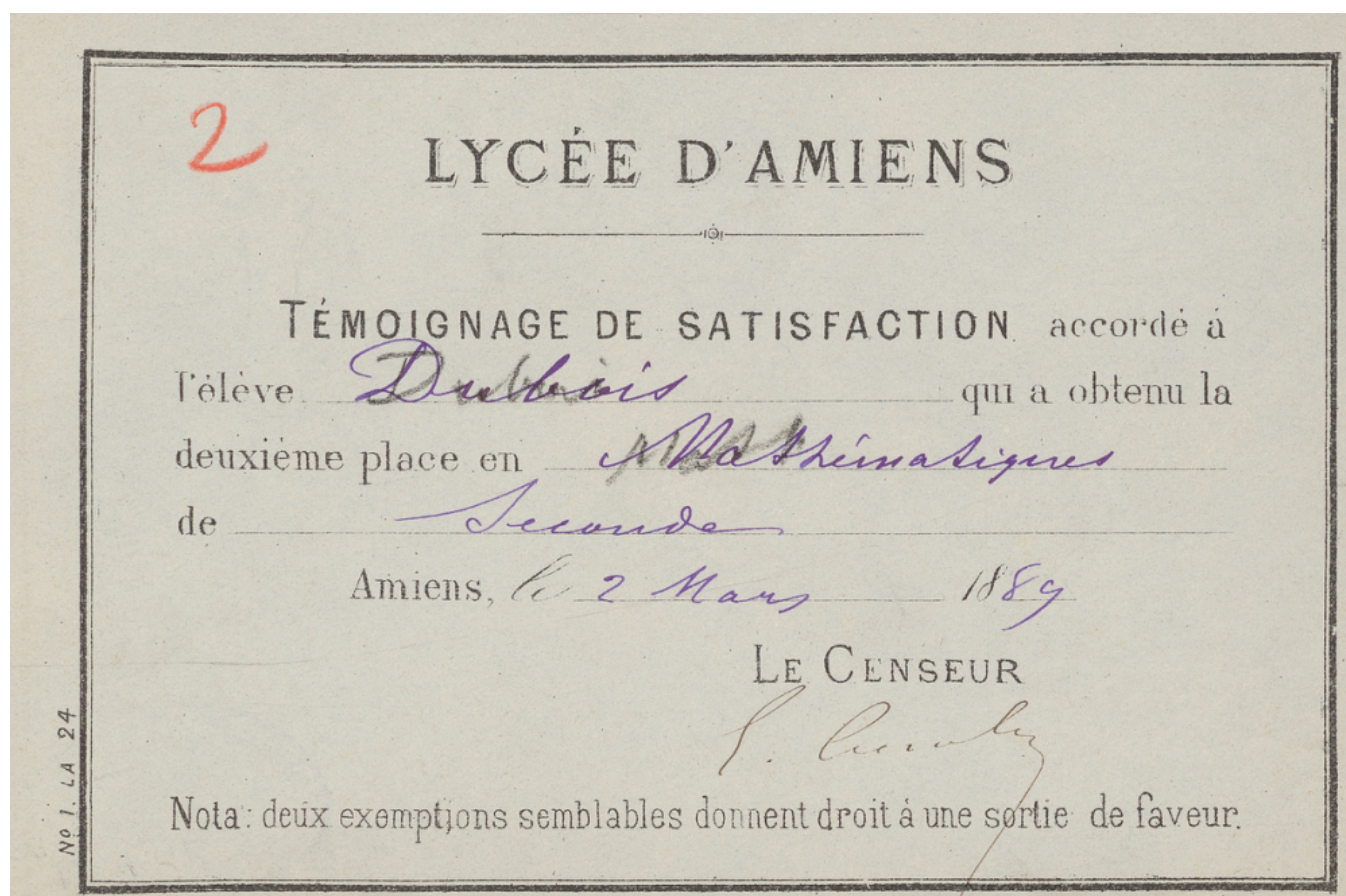 2
LYCÉE D'AMIENS
TÉMOIGNAGE DE SATISFACTION accordé à
l'élève Dubois qui a obtenu la
deuxième place en Mathématiques
de Seconde
Amiens, le 2 Mars 1889
LE CENSEUR
Nota : deux exemptions semblables donnent droit à une sortie de faveur.
Nº 1. LA 24